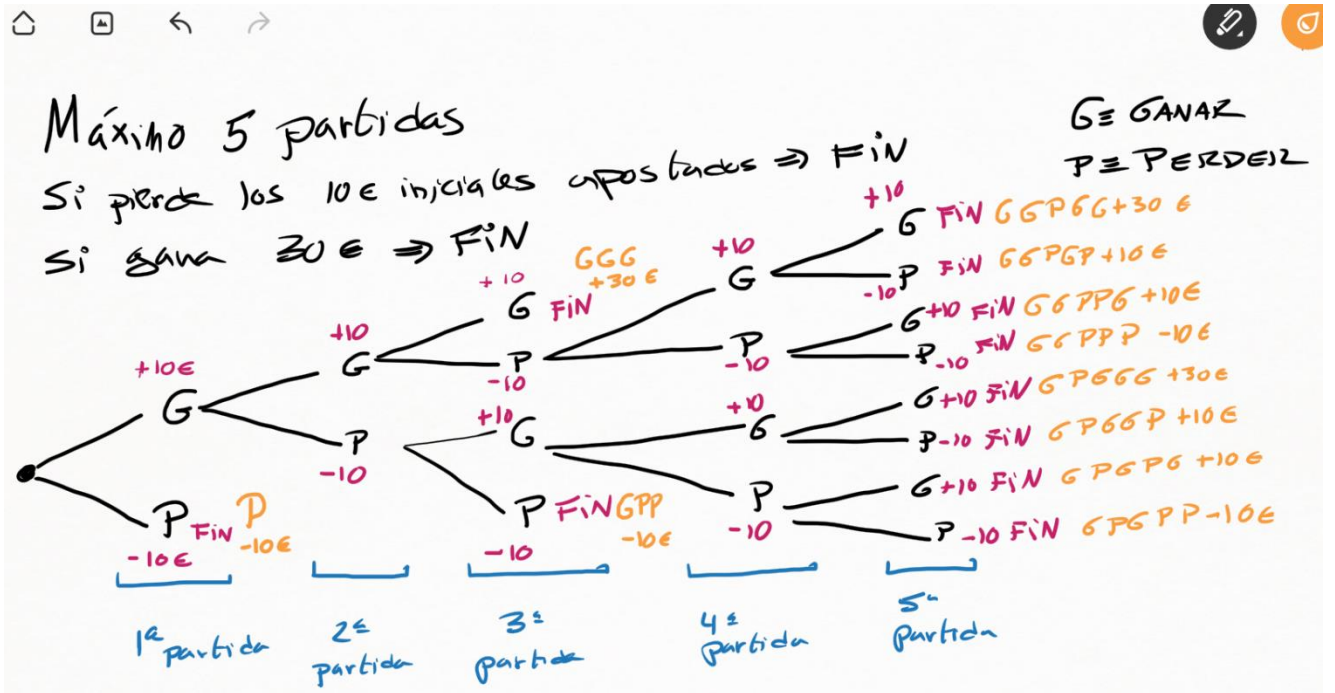 Máximo 5 partidas
Si pierde los 10 € iniciales apostados ⇒ FiN
Si gana 30 € ⇒ FiN
G ≡ GANAR
P ≡ PERDER
+10€
G
P FiN P
-10€ -10€
+10
G
P
-10
+10 GGG
G FiN +30 €
P
-10
+10
G
P FiN GPP
-10 -10€
+10
G
P
-10
+10
G
P
-10
+10
G FiN GGPGG +30 €
P FiN GGPGP +10€
-10
G +10 FiN GGPPG +10€
P -10 FiN GGPPP -10€
G +10 FiN GPGGG +30€
P -10 FiN GPGGP +10€
G +10 FiN GPGPG +10€
P -10 FiN GPGPP -10€
1ª partida
2ª partida
3ª partida
4ª partida
5ª partida